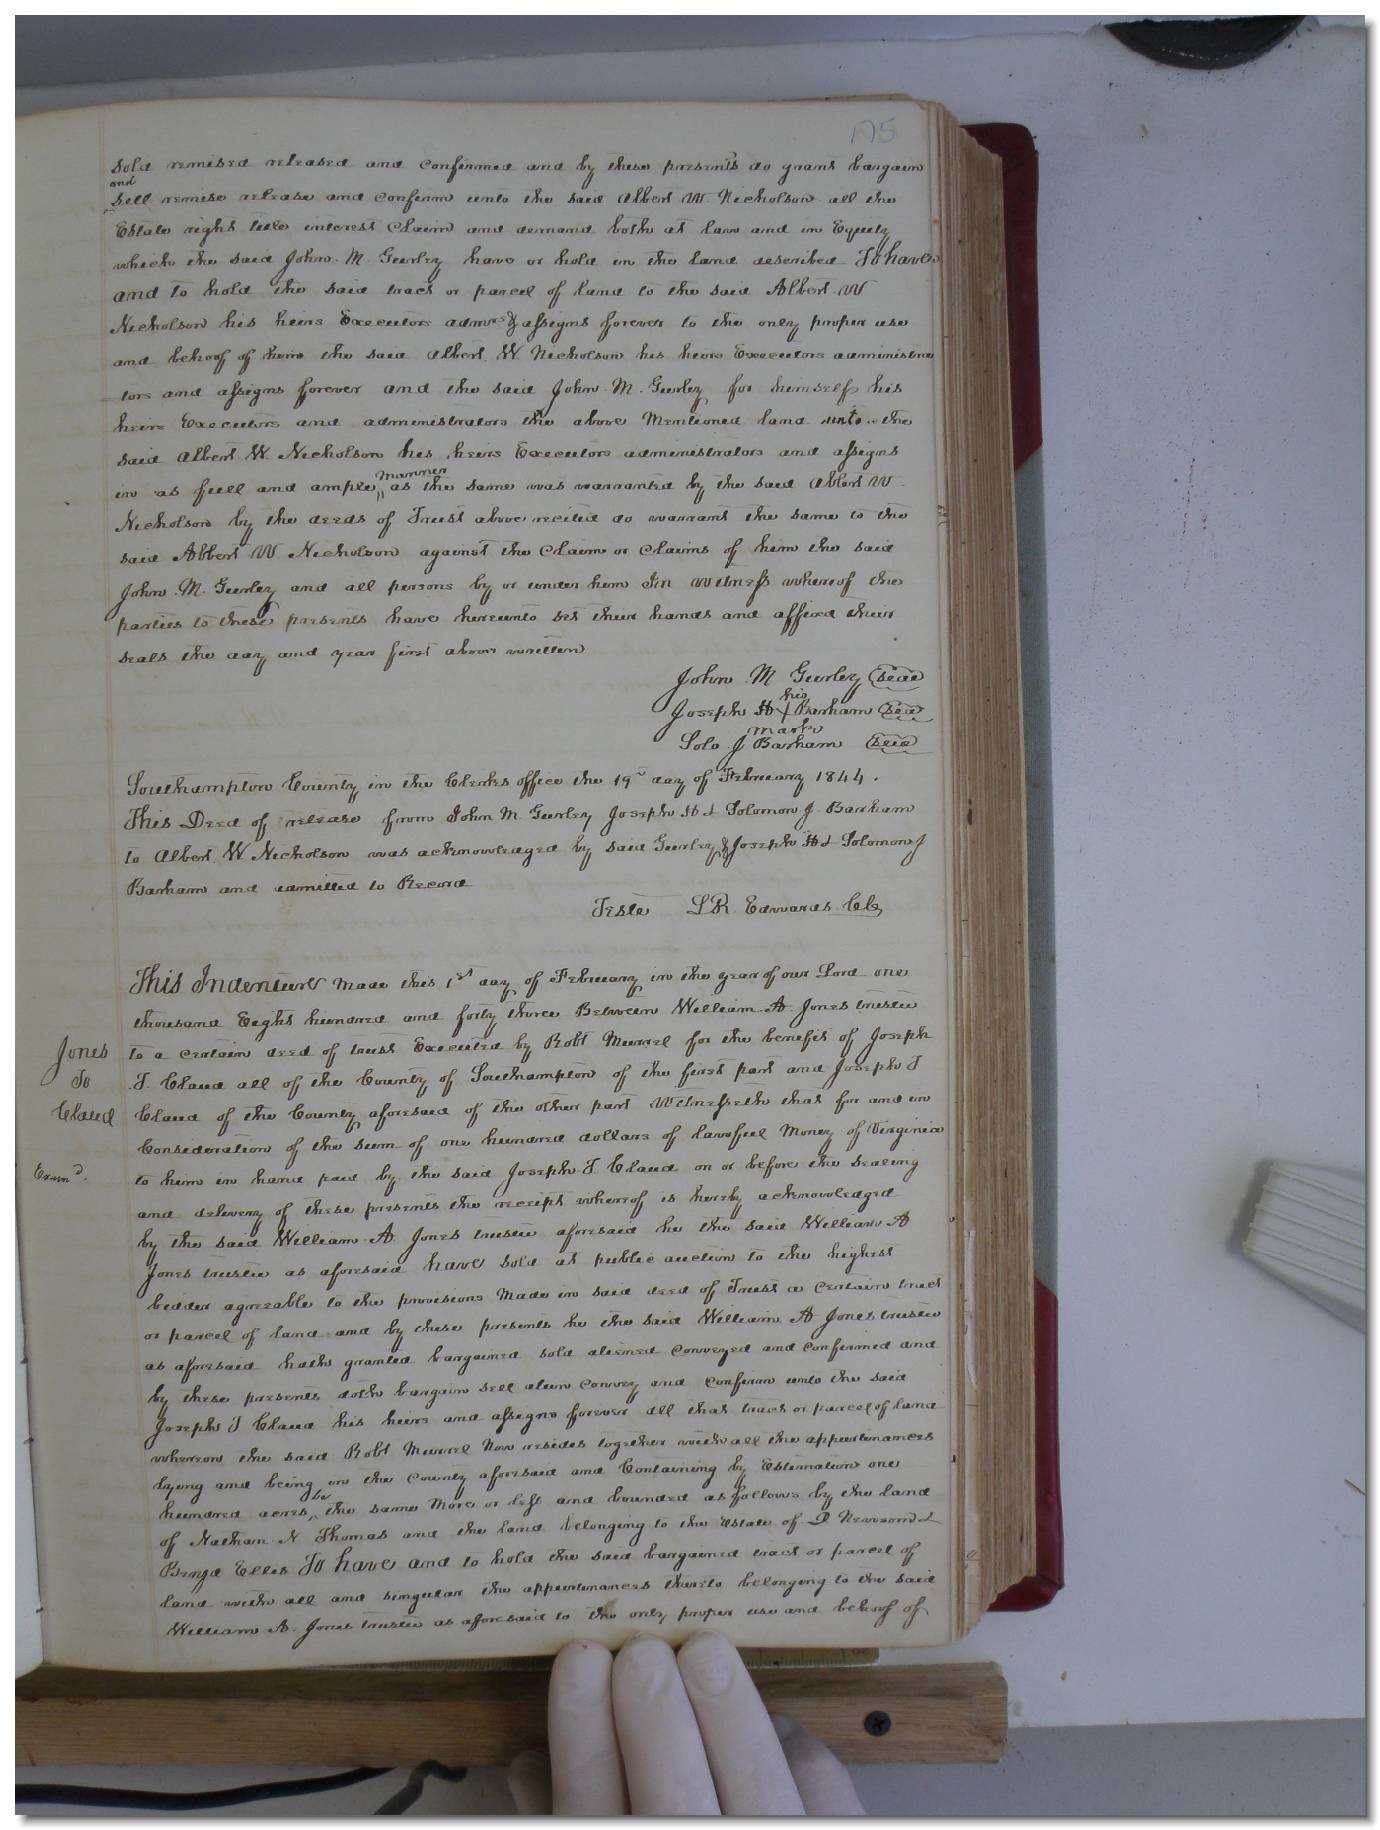 175
sold remised released and confirmed and by these presents do grant bargain
and
sell remise release and confirm unto the said Albert W. Nicholson all the
Estate right title interest Claim and demand both at law and in Equity
which the said John M. Gurley have or hold in the land described To have
and to hold the said tract or parcel of land to the said Albert W
Nicholson his heirs Executors admrs & assigns forever to the only proper use
and behoof of him the said Albert W Nicholson his heirs Executors administra
tors and assigns forever and the said John M. Gurley for himself his
heirs Executors and administrators the above Mentioned land unto the
said Albert W. Nicholson his heirs Executors administrators and assigns
manner
in as full and ample as the same was warranted by the said Albert W.
Nicholson by the deeds of Trust above recited do warrant the same to the
said Albert W Nicholson against the Claim or Claims of him the said
John M. Gurley and all persons by or under him In witness whereof the
parties to these presents have hereunto set their hands and affixed their
seals the day and year first above written
John M Gurley seal
his
Joseph H + Barham seal
mark
Solo J Barham seal
Southampton County in the Clerks office the 19th day of February 1844.
This Deed of release from John M Gurley Joseph H & Solomon J. Barham
to Albert W Nicholson was acknowledged by said Gurley & Joseph H & Solomon J
Barham and admitted to Record
Teste L R Edwards Clk
This Indenture Made this 1st day of February in the year of our Lord one
thousand Eight hundred and forty three Between William A Jones trustee
Jones
to a certain deed of trust Executed by Robt Murrel for the benefit of Joseph
To
T. Claud all of the County of Southampton of the first part and Joseph T
Claud
Claud of the County aforesaid of the other part Witnesseth that for and in
Consideration of the sum of one hundred dollars of lawful Money of Virginia
Examd.
to him in hand paid by the said Joseph T Claud on or before the sealing
and delivery of these presents the receipt whereof is hereby acknowledged
by the said William A Jones trustee aforesaid he the said William A
Jones trustee as aforesaid have sold at public auction to the highest
bidder agreable to the provisions Made in said deed of Trust a certain tract
or parcel of land and by these presents he the said William A Jones trustee
as aforesaid hath granted bargained sold aliened conveyed and confirmed and
by these presents doth bargain sell alien convey and confirm unto the said
Joseph T Claud his heirs and assigns forever all that tract or parcel of land
whereon the said Robt Murrel Now resides together with all the appurtenances
lying and being in the County aforesaid and Containing by Estimation one
be
hundred acres the same More or less and bounded as follows by the land
of Nathan N Thomas and the land belonging to the estate of D Newsom &
Benja Elles To have and to hold the said bargained tract or parcel of
land with all and singular the appurtenances thereto belonging to the said
William A. Jones trustee as aforesaid to the only proper use and behoof of